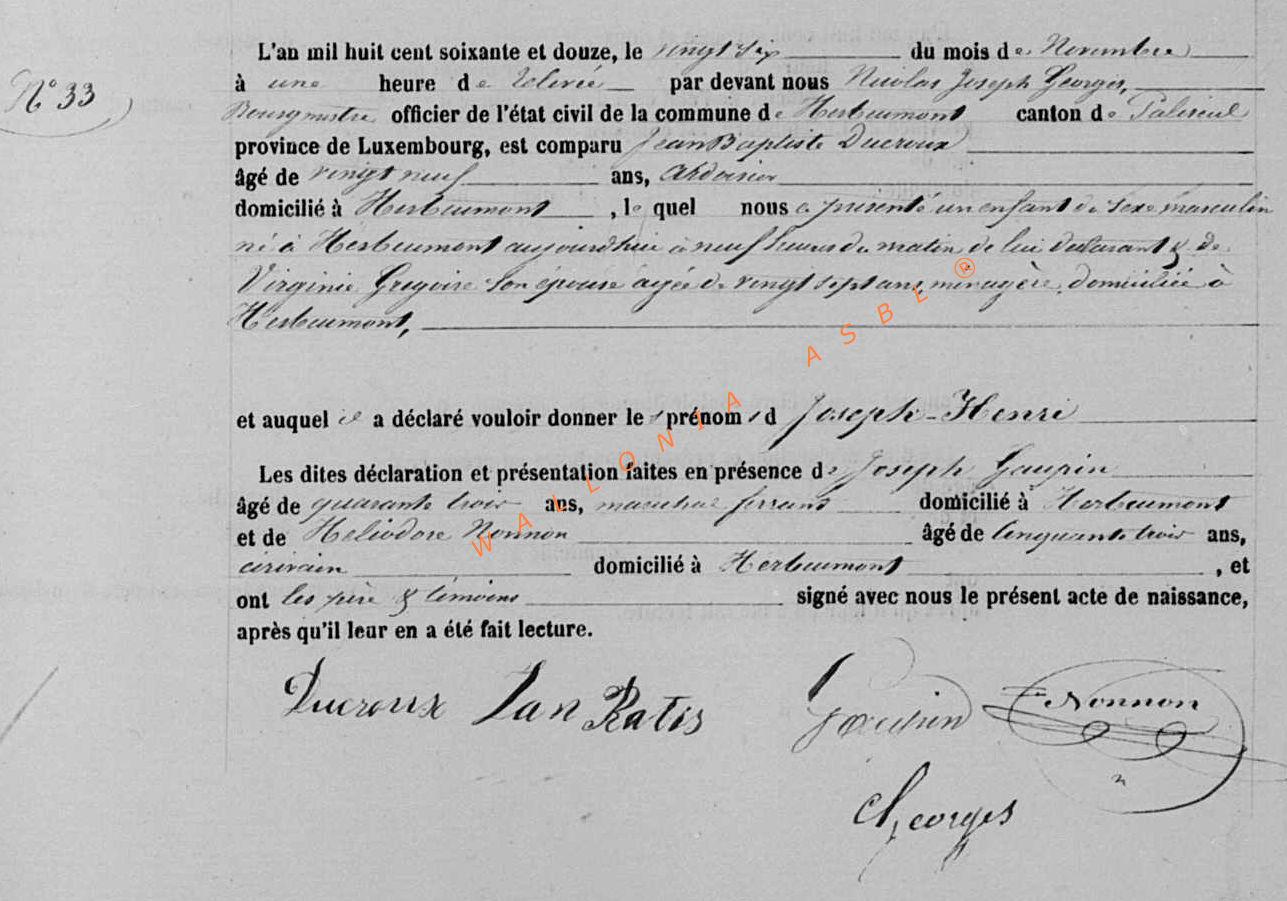 N° 33
L'an mil huit cent soixante et douze, le vingt six du mois de Novembre
à une heure de relevée par devant nous Nicolas Joseph Georges,
Bourgmestre officier de l'état civil de la commune de Herbeumont canton de Paliseul
province de Luxembourg, est comparu Jean Baptiste Ducroux
âgé de vingt neuf ans, ardoisier
domicilié à Herbeumont, lequel nous a présenté un enfant du sexe masculin
né à Herbeumont aujourd'hui à neuf heures du matin de lui déclarant & de
Virginie Grégoire son épouse agée de vingt sept ans, ménagère, domiciliée à
Herbeumont,
et auquel il a déclaré vouloir donner les prénoms d Joseph-Henri
Les dites déclaration et présentation faites en présence de Joseph Gaupin
âgé de quarante trois ans, maréchal ferrant domicilié à Herbeumont
et de Héliodore Nonnon âgé de cinquante trois ans,
écrivain domicilié à Herbeumont, et
ont les père & témoins signé avec nous le présent acte de naissance,
après qu'il leur en a été fait lecture.
Ducroux Jan Batis Nonnon
Georges
WALLONIA ASBL ®